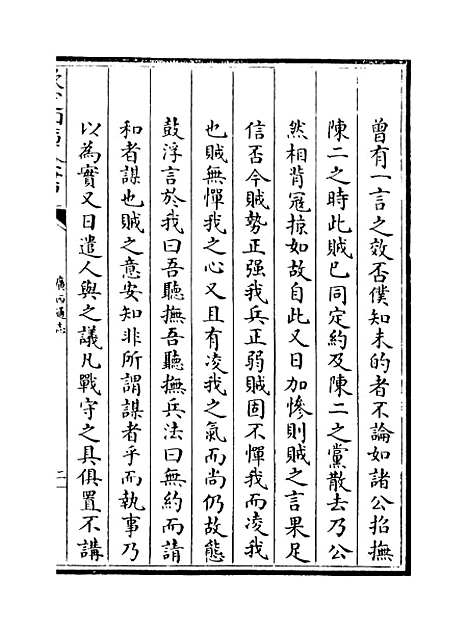 曾有一言之效否僕知未的者不論如諸公招撫
陳二之時此賊已同定約及陳二之黨散去乃公
然相背寇掠如故自此又日加慘則賊之言果足
信否今賊勢正强我兵正弱賊固不憚我而凌我
也賊無憚我之心又且有凌我之氣而尚仍故態
鼓浮言於我曰吾聽撫吾聽撫兵法曰無約而請
和者謀也賊之意安知非所謂謀者乎而執事乃
以為實又日遣人與之議凡戰守之具俱置不講
廣西通志